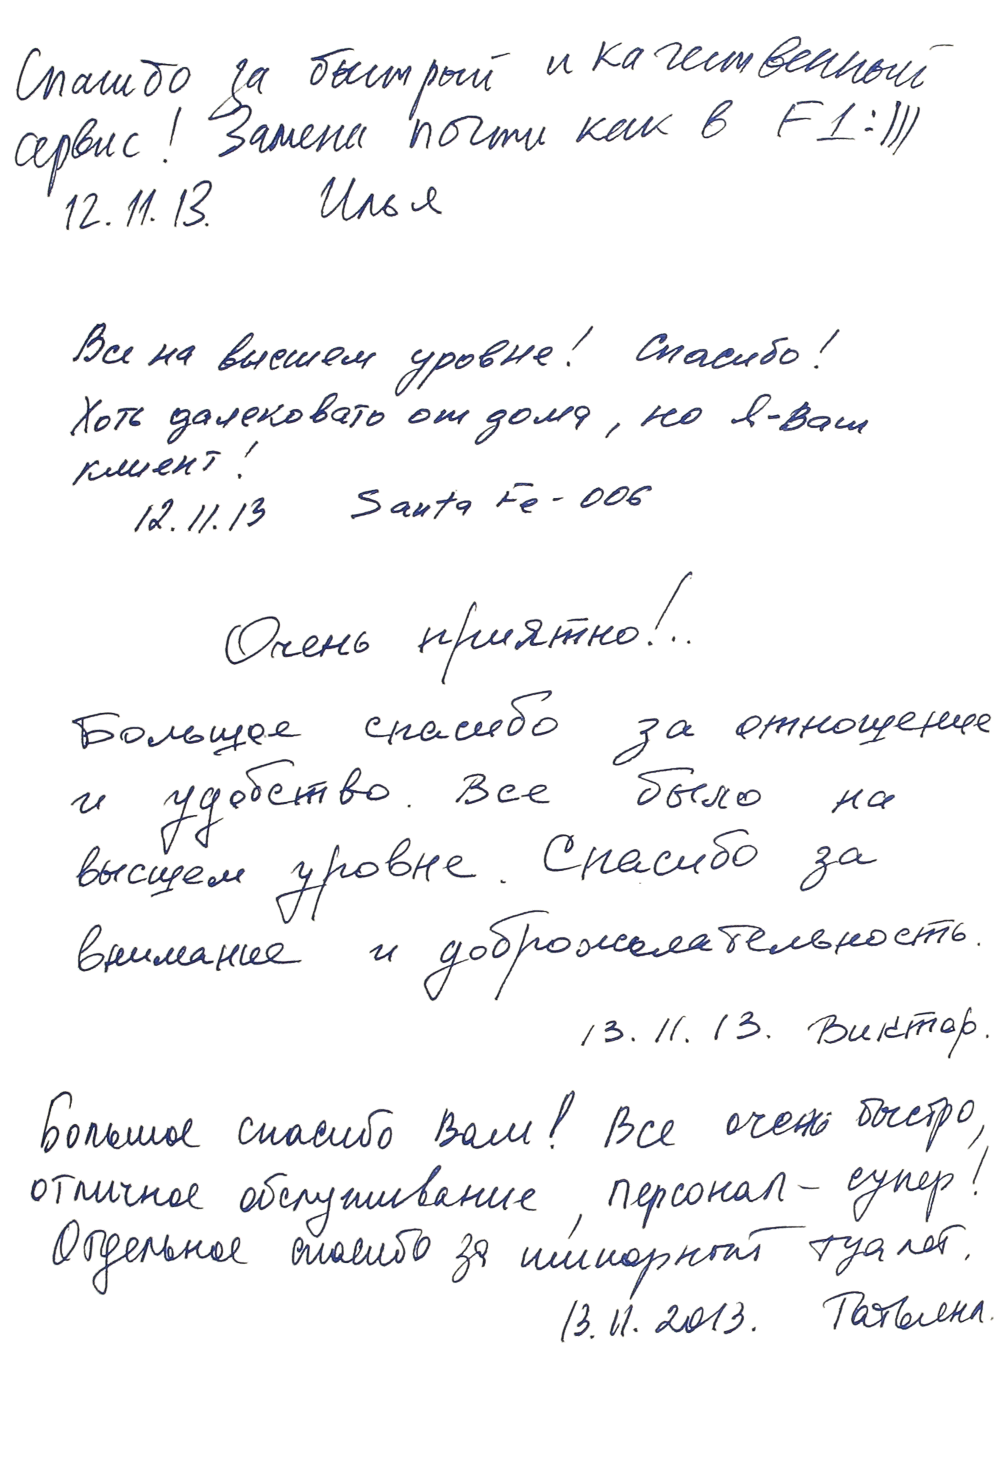 Спасибо за быстрый и качественный
сервис! Замена почти как в F1:)))
12.11.13. Илья
Все на высшем уровне! Спасибо!
Хоть далековато от дома, но я-Ваш
клиент!
12.11.13 Santa Fe-006
Очень приятно!..
Большое спасибо за отношение
и удобство. Все было на
высшем уровне. Спасибо за
внимание и доброжелательность.
13.11.13. Виктор.
Большое спасибо Вам! Все очень быстро,
отличное обслуживание, персонал - супер!
Отдельное спасибо за шикарный туалет.
13.11.2013. Татьяна.